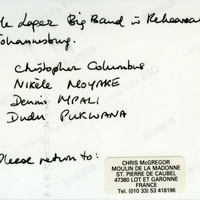 Big Band in Rehearsal
Johannesburg.
Christopher Columbus
Nikele MOYAKE
Dennis MPALI
Dudu PUKWANA
Please return to:
CHRIS McGREGOR
MOULIN DE LA MADONNE
ST. PIERRE DE CAUBEL
47380 LOT ET GARONNE
FRANCE
Tel. (010 33) 53 418196